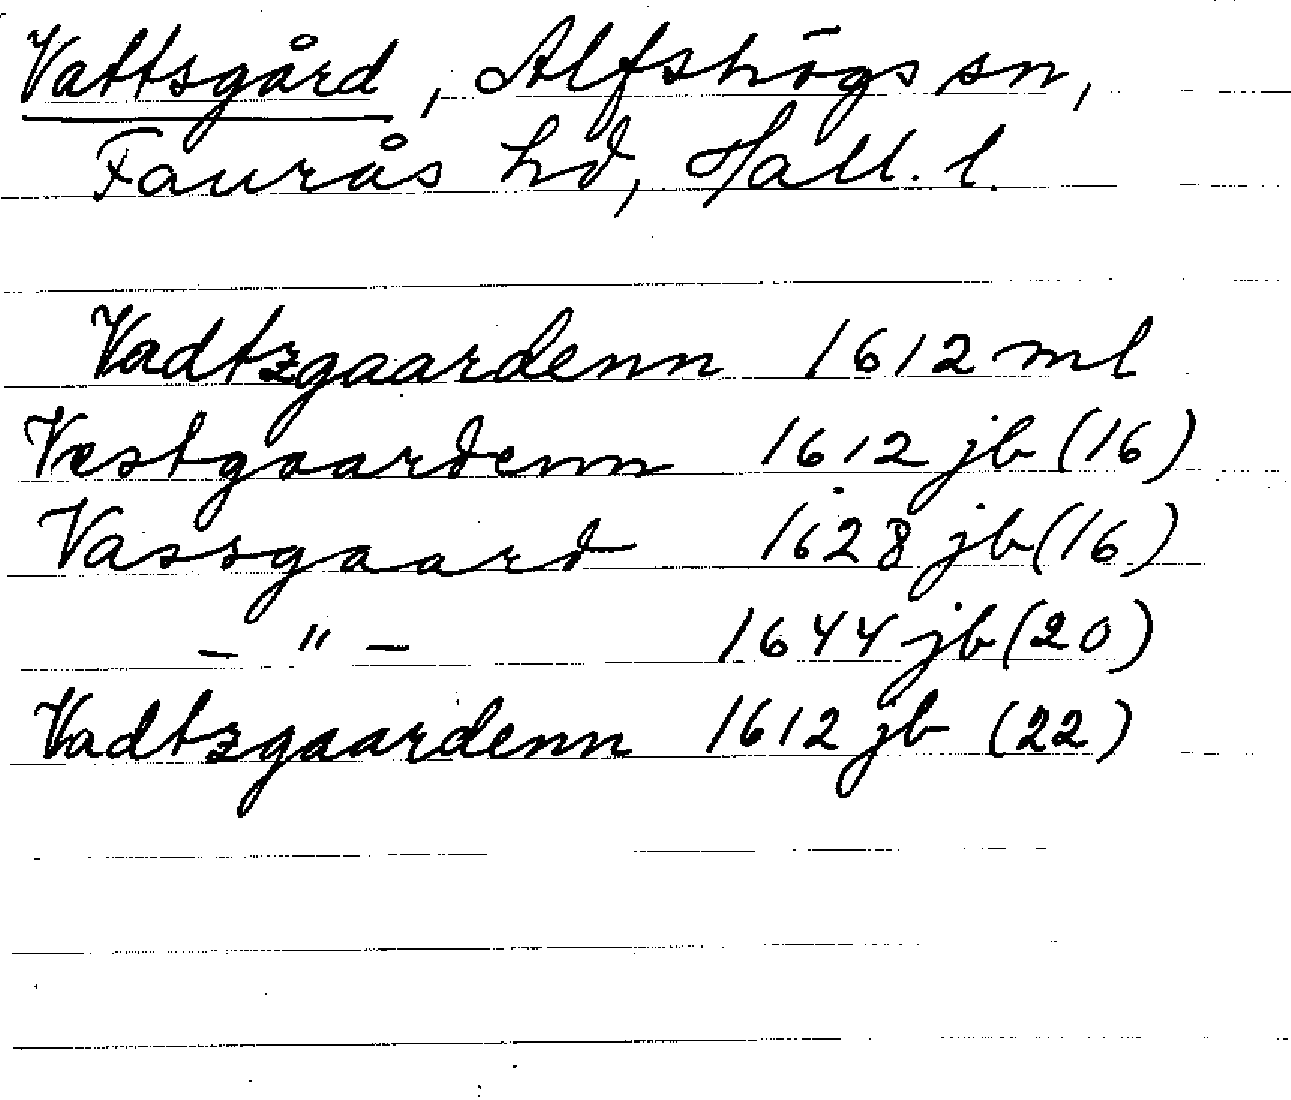 Vattsgård, Alfshögs sn,
Faurås hd, Hall. l.
Vadtzgaardenn 1612 ml
Vestgaardenn 1612 jb (16)
Vassgaard 1628 jb (16)
– " – 1644 jb (20)
Vadtzgaardenn 1612 jb (22)